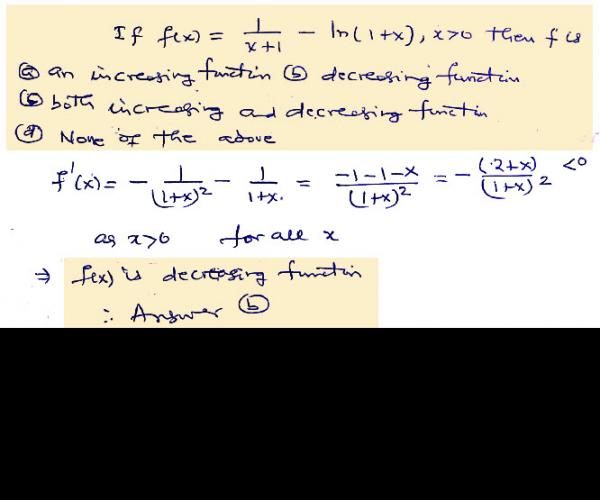 If f(x) = 1/(x+1) - ln(1+x), x>0 then f is
(a) an increasing function (b) decreasing function
(c) both increasing and decreasing function
(d) None of the above
f'(x) = - 1/(1+x)² - 1/(1+x). = (-1-1-x)/(1+x)² = - (2+x)/(1+x)² <0
as x>0 for all x
⇒ f(x) is decreasing function
∴ Answer (b)